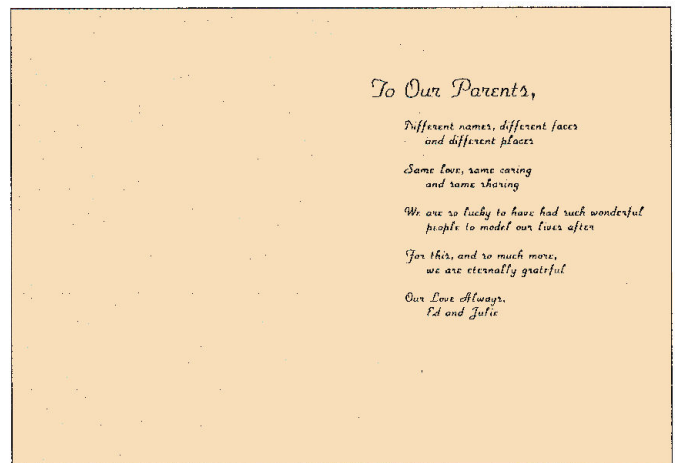 To Our Parents,
Different names, different faces
and different places
Same love, same caring
and same sharing
We are so lucky to have had such wonderful
people to model our lives after
For this, and so much more,
we are eternally grateful
Our Love Always,
Ed and Julie